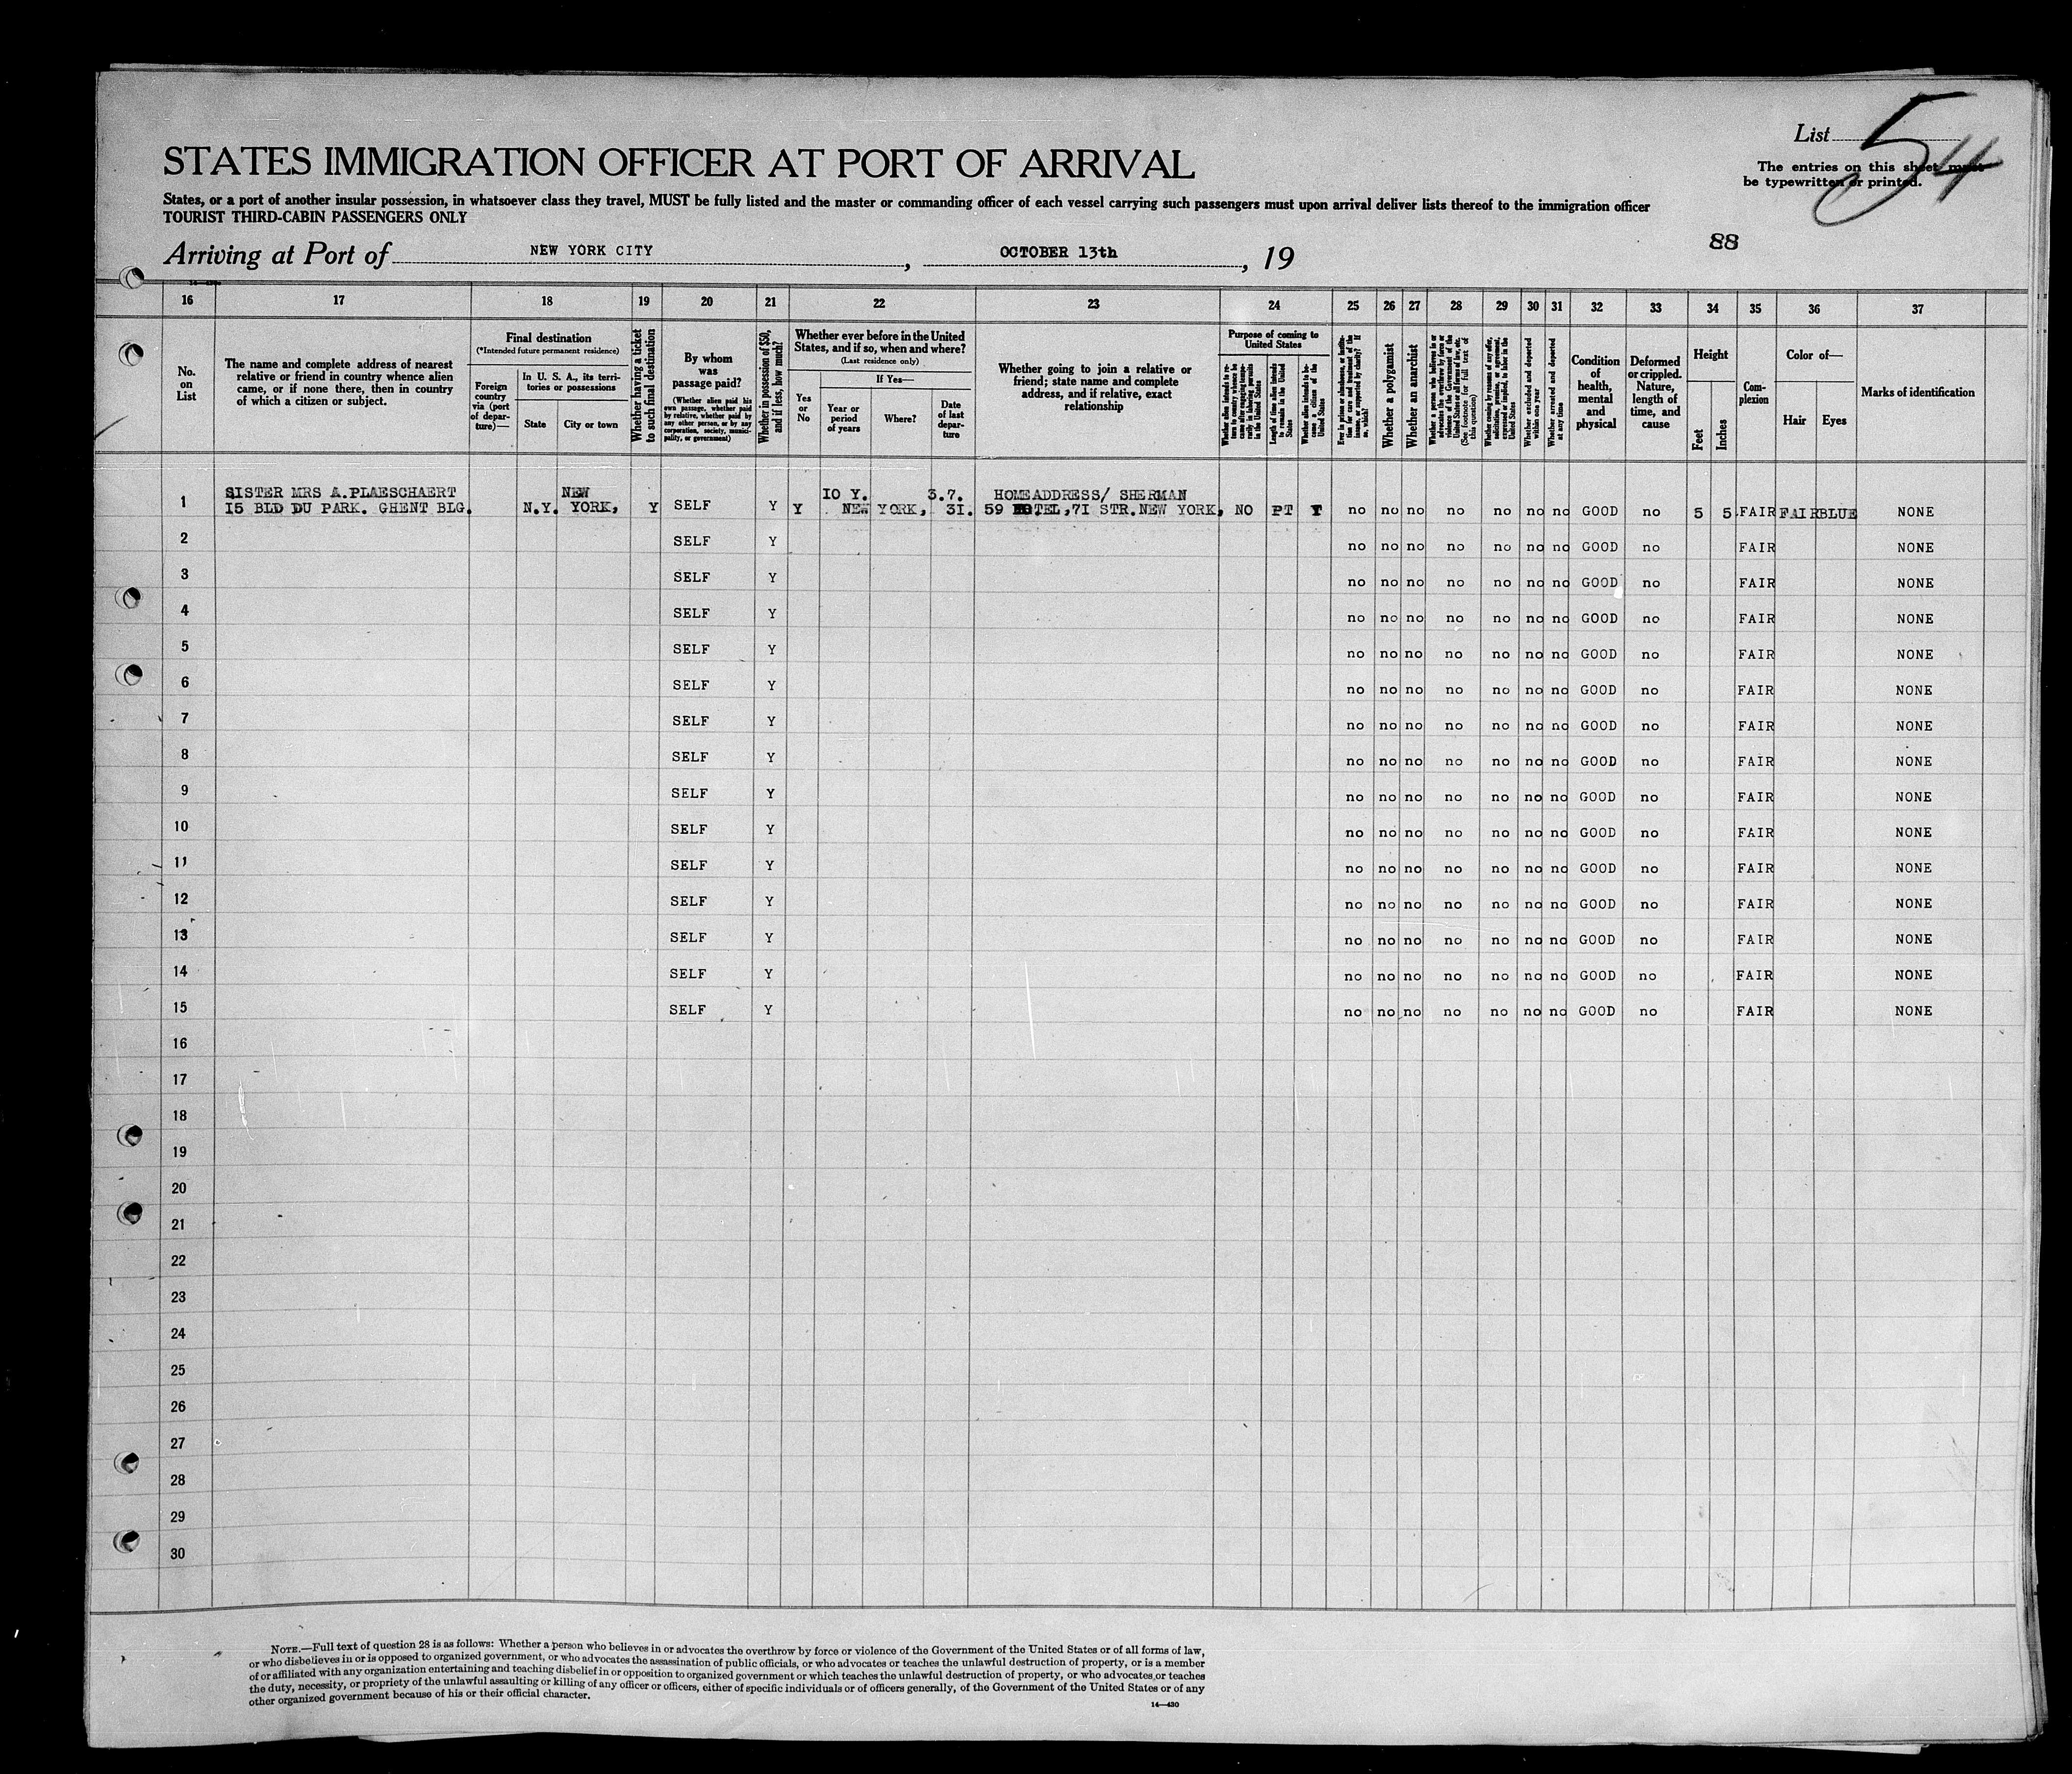 List 5
54
The entries on this sheet must
be typewritten or printed.
STATES IMMIGRATION OFFICER AT PORT OF ARRIVAL
States, or a port of another insular possession, in whatsoever class they travel, MUST be fully listed and the master or commanding officer of each vessel carrying such passengers must upon arrival deliver lists thereof to the immigration officer
TOURIST THIRD-CABIN PASSENGERS ONLY
88
Arriving at Port of NEW YORK CITY, OCTOBER 13th, 19
16 17 18 19 20 21 22 23 24 25 26 27 28 29 30 31 32 33 34 35 36 37
No.
on
List
The name and complete address of nearest
relative or friend in country whence alien
came, or if none there, then in country
of which a citizen or subject.
Final destination
(*Intended future permanent residence)
Foreign
country
via (port
of depar-
ture)—
In U. S. A., its terri-
tories or possessions
State
City or town
Whether having a ticket
to such final destination
By whom
was
passage paid?
(Whether alien paid his
own passage, whether paid
by relative, whether paid by
any other person, or by any
corporation, society, munici-
pality, or government)
Whether in possession of $50,
and if less, how much?
Whether ever before in the United
States, and if so, when and where?
(Last residence only)
Yes
or
No
If Yes—
Year or
period
of years
Where?
Date
of last
depar-
ture
Whether going to join a relative or
friend; state name and complete
address, and if relative, exact
relationship
Purpose of coming to
United States
Length of time alien intends
to remain in the United
States
Whether alien intends to be-
come a citizen of the
United States
Whether a polygamist
Whether an anarchist
(See footnote for full text of
this question)
Whether arrested and deported
at any time
Condition
of
health,
mental
and
physical
Deformed
or crippled.
Nature,
length of
time, and
cause
Height
Feet
Inches
Com-
plexion
Color of—
Hair
Eyes
Marks of identification
SISTER MRS A.PLAESCHAERT NEW IO Y. 3.7. HOMEADDRESS/ SHERMAN
1 I5 BLD DU PARK. GHENT BLG. N.Y. YORK, Y SELF Y Y NEW YORK, 3I. 59 HOTEL,7I STR.NEW YORK, NO PT Y no no no no no no no GOOD no 5 5 FAIR FAIR BLUE NONE
2 SELF Y no no no no no no no GOOD no FAIR NONE
3 SELF Y no no no no no no no GOOD no FAIR NONE
4 SELF Y no no no no no no no GOOD no FAIR NONE
5 SELF Y no no no no no no no GOOD no FAIR NONE
6 SELF Y no no no no no no no GOOD no FAIR NONE
7 SELF Y no no no no no no no GOOD no FAIR NONE
8 SELF Y no no no no no no no GOOD no FAIR NONE
9 SELF Y no no no no no no no GOOD no FAIR NONE
10 SELF Y no no no no no no no GOOD no FAIR NONE
11 SELF Y no no no no no no no GOOD no FAIR NONE
12 SELF Y no no no no no no no GOOD no FAIR NONE
13 SELF Y no no no no no no no GOOD no FAIR NONE
14 SELF Y no no no no no no no GOOD no FAIR NONE
15 SELF Y no no no no no no no GOOD no FAIR NONE
16
17
18
19
20
21
22
23
24
25
26
27
28
29
30
NOTE.—Full text of question 28 is as follows: Whether a person who believes in or advocates the overthrow by force or violence of the Government of the United States or of all forms of law,
or who disbelieves in or is opposed to organized government, or who advocates the assassination of public officials, or who advocates or teaches the unlawful destruction of property, or is a member
of or affiliated with any organization entertaining and teaching disbelief in or opposition to organized government or which teaches the unlawful destruction of property, or who advocates or teaches
the duty, necessity, or propriety of the unlawful assaulting or killing of any officer or officers, either of specific individuals or of officers generally, of the Government of the United States or of any
other organized government because of his or their official character.
14—430